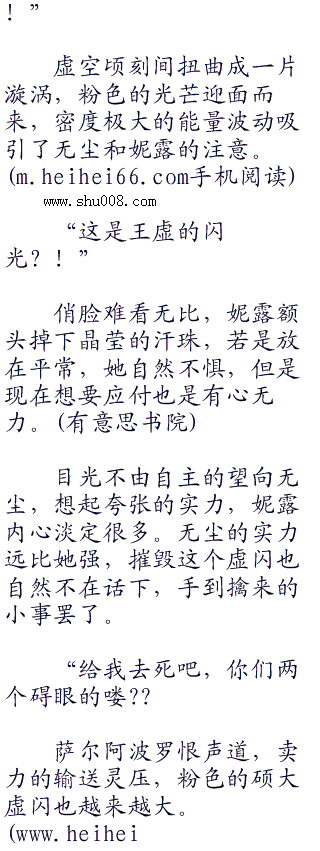 ！”
虚空顷刻间扭曲成一片
漩涡，粉色的光芒迎面而
来，密度极大的能量波动吸
引了无尘和妮露的注意。
(m.heihei66.com手机阅读)
www.shu008.com
“这是王虚的闪
光？！”
俏脸难看无比，妮露额
头掉下晶莹的汗珠，若是放
在平常，她自然不惧，但是
现在想要应付也是有心无
力。(有意思书院)
目光不由自主的望向无
尘，想起夸张的实力，妮露
内心淡定很多。无尘的实力
远比她强，摧毁这个虚闪也
自然不在话下，手到擒来的
小事罢了。
“给我去死吧，你们两
个碍眼的喽??
萨尔阿波罗恨声道，卖
力的输送灵压，粉色的硕大
虚闪也越来越大。
(www.heihei